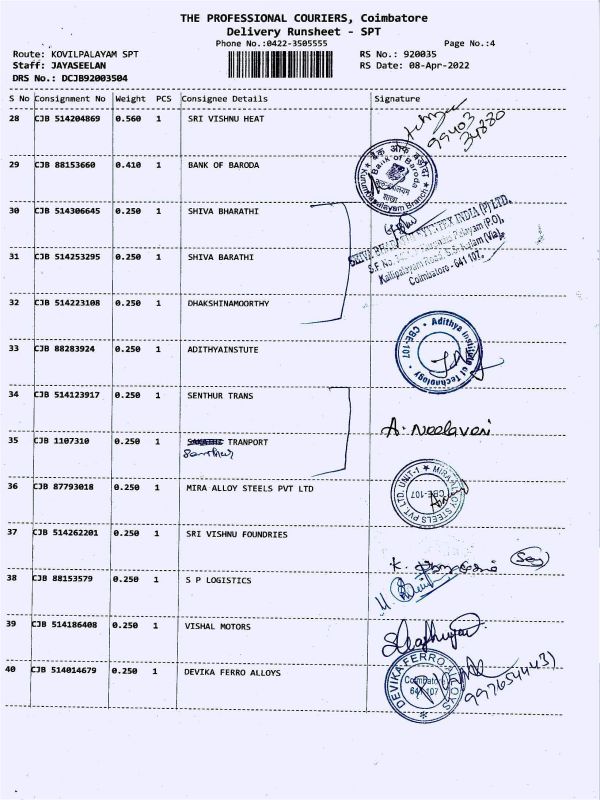 THE PROFESSIONAL COURIERS, Coimbatore
Delivery Runsheet - SPT
Phone No.:0422-3505555
Page No.:4
Route: KOVILPALAYAM SPT
RS No.: 920035
Staff: JAYASEELAN
RS Date: 08-Apr-2022
DRS No.: DCJB92003504
S No Consignment No Weight PCS Consignee Details Signature
28 CJB 514204869 0.560 1 SRI VISHNU HEAT
99403
34880
29 CJB 88153660 0.410 1 BANK OF BARODA
बैंक ऑफ बड़ौदा
Bank of Baroda
शाखा
Branch
30 CJB 514306645 0.250 1 SHIVA BHARATHI
31 CJB 514253295 0.250 1 SHIVA BARATHI
INDIA (P) LTD,
Kalipalayam Road, S.S. Kulam (Via),
Coimbatore - 641 107.
32 CJB 514223108 0.250 1 DHAKSHINAMOORTHY
33 CJB 88283924 0.250 1 ADITHYAINSTUTE
Adithya Institute of Technology
CBE-107
34 CJB 514123917 0.250 1 SENTHUR TRANS
A. Neelaveni
35 CJB 1107310 0.250 1 TRANPORT
Senthur
36 CJB 87793018 0.250 1 MIRA ALLOY STEELS PVT LTD
MIRA ALLOY STEELS PVT. LTD. UNIT-1
CBE-107
37 CJB 514262201 0.250 1 SRI VISHNU FOUNDRIES
38 CJB 88153579 0.250 1 S P LOGISTICS
39 CJB 514186408 0.250 1 VISHAL MOTORS
40 CJB 514014679 0.250 1 DEVIKA FERRO ALLOYS
DEVIKA FERRO ALLOYS
Coimbatore
641 107